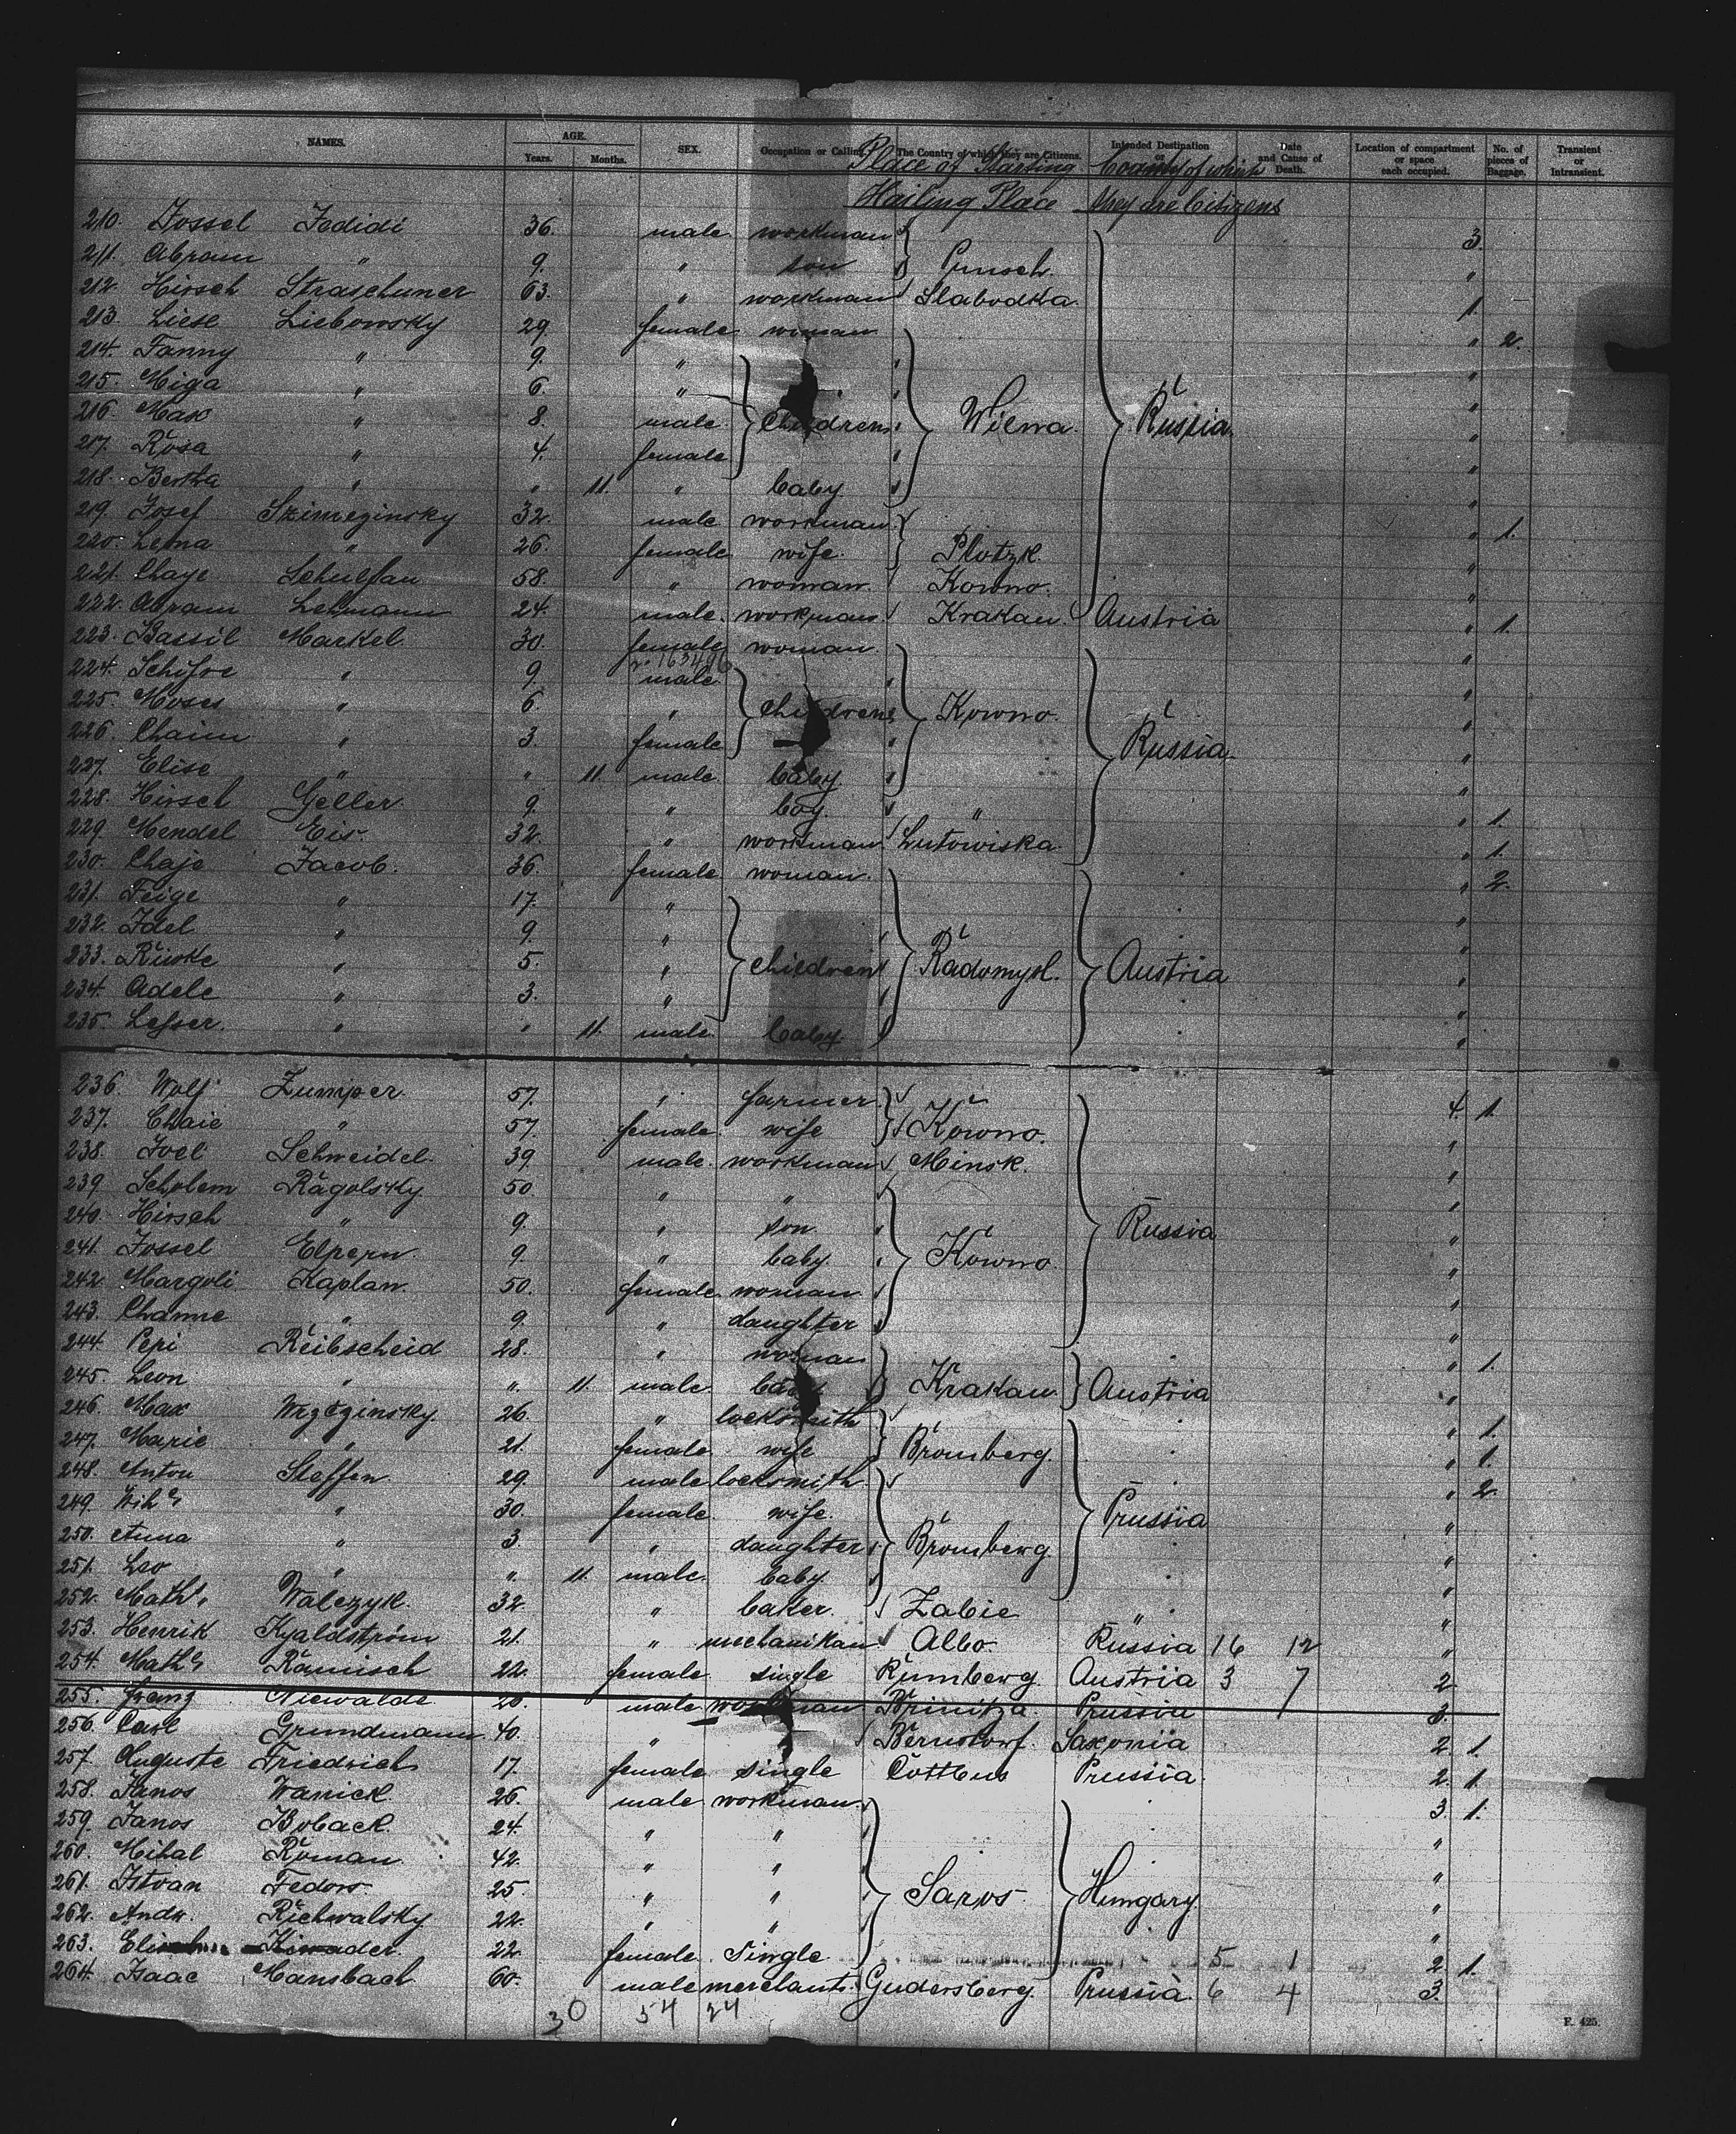 NAMES. AGE. Years. Months. SEX. Occupation or Calling. The Country of which they are Citizens. Intended Destination or Date and Cause of Death. Location of compartment or space each occupied. No. of pieces of Baggage. Transient or Intransient.
Place of Starting County of which
Hailing Place they are Citizens
210. Jossel Jedidi 36. male workman 3.
211. Abram " 9. " son Punsch.
212. Hirsch Straschuner 63. " workman Slabodka 1.
213. Liese Liebowsky 29. female woman " 2.
214. Fanny " 9. " "
215. Higa " 6. " "
216. Max " 8. male Children Wilna Russia "
217. Rosa " 4. female "
218. Bertha " " 11. " baby "
219. Josef Szimreginsky 32. male workman " 1.
220. Lema " 26. female wife Plotzk "
221. Chaye Schulfau 58. " woman Kowno. "
222. Abram Lehmann 24. male workman Krakau Austria " 1.
223. Bassil Markel 30. female woman "
163496
224. Schifre " 9. male "
225. Moses " 6. " Children Kowno. "
226. Chaim " 3. female Russia. "
227. Elise " " 11. male baby "
228. Hirsch Geller 9. " boy " " 1.
229. Mendel Eis. 32. " workman Lutowiska " 1.
230. Chaje Jacob. 36. female woman " 2.
231. Feige " 17. " "
232. Idel " 9. " "
233. Riwke " 5. " Children Radomysl. Austria "
234. Adele " 3. " "
235. Lesser. " " 11. male baby. "
236. Wolf Zumper. 57. " farmer 4. 1.
237. Chaie " 57. female wife Kowno. "
238. Joel Schneidel 39. male workman Minsk. "
239. Scholem Ragolsky 50. " " "
240. Hirsch " 9. " son Russia "
241. Jossel Elpern 9. " baby. Kowno "
242. Margoli Kaplan 50. female woman "
243. Channe " 9. " daughter "
244. Pepi Reibscheid 28. " woman " 1.
245. Leon " " 11. male baby Krakau Austria "
246. Max 26. " locksmith " 1.
247. Marie " 21. female wife Bromberg " 1.
248. Anton Steffen 29. male locksmith " 2.
249. " 30. female wife. Prussia "
250. Anna " 3. " daughter Bromberg "
251. Leo " " 11. male baby "
252. Math. Walczyk. 32. " baker. Zabie " "
253. Henrik Kyaldström 21. " mechanikan Albo. Russia 16 12 "
254. Math. Ramisch 22. female single Rumberg Austria 3 7 2
255. Franz Niewalde 26. male workman Brinitza Prussia 3.
256. Carl Grundmann 40. " Bernstorf. Saxonia 2 1.
257. Auguste Friedrich 17. female single Cottbus Prussia. 2. 1.
258. Janos Wanick 26. male workman 3. 1.
259. Janos Boback. 24. " " "
260. Mihal Roman 42. " " "
261. Istvan Fedors. 25. " " Saros Hungary. "
262. Andr. Richwalsky 22. " " "
263. 22. female Single 5 1 2 1.
264. Isaac Mansbach 60. male merchant. Gudersberg. Prussia 6 4 3.
30 54 24
F. 425.